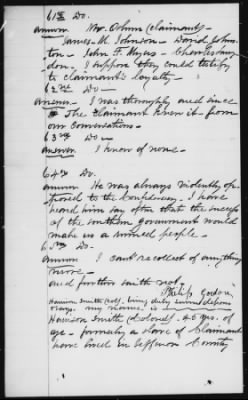 61st Do.
answer Mr. Ohm (claimant)
James M. Johnson – David John-
ton – John F. Myers – Charles
don. I suppose they could testify
to claimants loyalty –
62nd Do –
answer – I was thoroughly and since
The Claimant knew it from
our Conversations –
63rd Do –
answer I know of none –
64th Do.
answer He was always violently op-
posed to the Confederacy. I have
heard him say often that the success
of the southern Government would
make us a ruined people –
65th Do –
answer I cant recollect of anything
more –
and further saith not.
Philip
Harrison Smith (col). being duly sworn deposes
& says. my name is
Harrison Smith (Colored) 46 yrs. of
age – formerly a slave of Claimant
have lived in Jefferson County